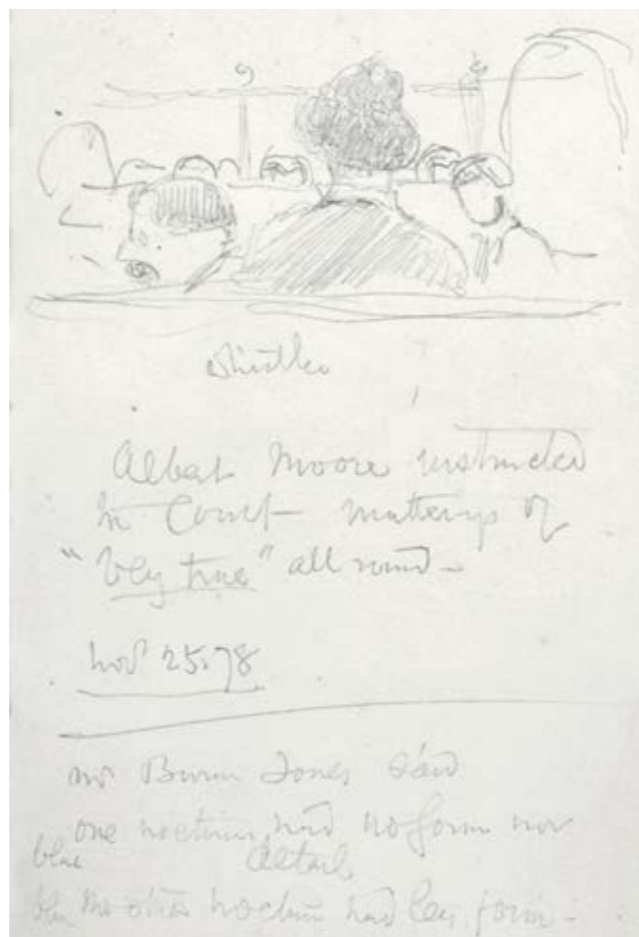 Whistler
Albert Moore instructed
in Court – mutterings of
"Very true" all round –
Nov 25.78
Mr Burne Jones said
one nocturne had no form nor
blue detail
the other nocturne had less form –